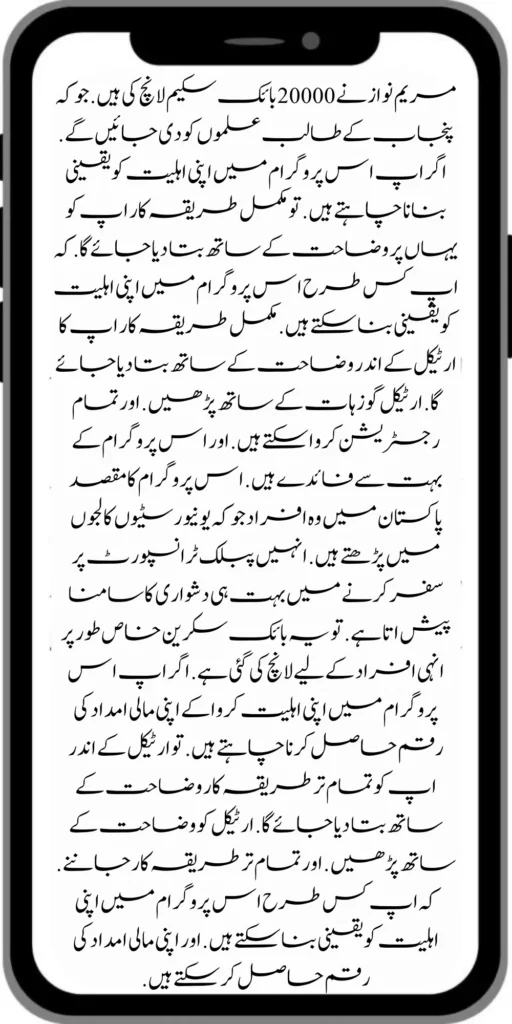 مریم نواز نے 20000 بائک سکیم لانچ کی ہیں. جو کہ
پنجاب کے طالب علموں کو دی جائیں گے.
اگر اپ اس پروگرام میں اپنی اہلیت کو یقینی
بنانا چاہتے ہیں. تو مکمل طریقہ کار اپ کو
یہاں پر وضاحت کے ساتھ بتا دیا جائے گا. کہ
اپ کس طرح اس پروگرام میں اپنی اہلیت
کو یقینی بنا سکتے ہیں. مکمل طریقہ کار اپ کا
ارٹیکل کے اندر وضاحت کے ساتھ بتا دیا جائے
گا. ارٹیکل گوزہات کے ساتھ پڑھیں. اور تمام
رجسٹریشن کروا سکتے ہیں. اور اس پروگرام کے
بہت سے فائدے ہیں. اس پروگرام کا مقصد
پاکستان میں وہ افراد جو کہ یونیورسٹیوں کالجوں
میں پڑھتے ہیں. انہیں پبلک ٹرانسپورٹ پر
سفر کرنے میں بہت ہی دشواری کا سامنا
پیش اتا ہے. تو یہ بائک سکرین خاص طور پر
انہی افراد کے لیے لانچ کی گئی ہے. اگر اپ اس
پروگرام میں اپنی اہلیت کروا کے اپنی مالی امداد کی
رقم حاصل کرنا چاہتے ہیں. تو ارٹیکل کے اندر
اپ کو تمام تر طریقہ کار وضاحت کے
ساتھ بتا دیا جائے گا. ارٹیکل کو وضاحت کے
ساتھ پڑھیں. اور تمام تر طریقہ کار جاننے.
کہ اپ کس طرح اس پروگرام میں اپنی
اہلیت کو یقینی بنا سکتے ہیں. اور اپنی مالی امداد کی
رقم حاصل کر سکتے ہیں.